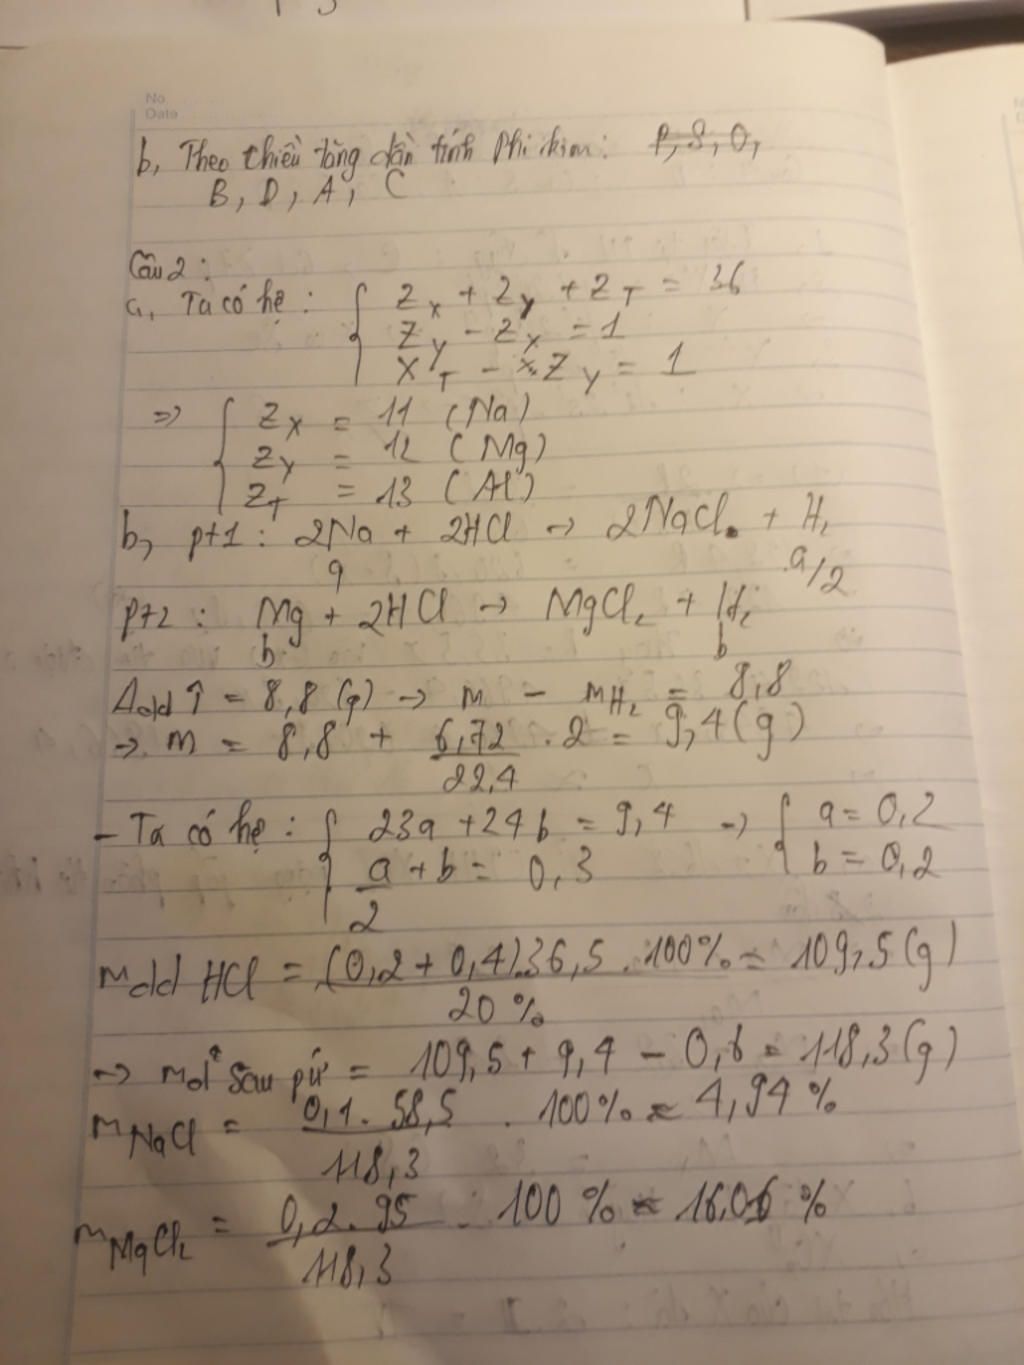 No.
Date
b, Theo chiều tăng dần tính phi kim: P, S, O,
B, D, A, C
Câu 2:
a, Ta có hệ: { Z_X + Z_Y + Z_T = 36
Z_Y - Z_X = 1
X_T - Z_Y = 1
=> { Z_X = 11 (Na)
Z_Y = 12 (Mg)
Z_T = 13 (Al)
b, pt1: 2Na + 2HCl → 2NaCl + H₂
a a/2
pt2: Mg + 2HCl → MgCl₂ + H₂
b b
Δdd↑ = 8,8 (g) → m - m_H₂ = 8,8
→ m = 8,8 + 6,72/22,4 . 2 = 9,4 (g)
- Ta có hệ: { 23a + 24b = 9,4 → { a = 0,2
a/2 + b = 0,3 b = 0,2
mdd HCl = (0,2 + 0,4).36,5/20% . 100% = 109,5 (g)
→ md² sau pứ = 109,5 + 9,4 - 0,6 = 118,3 (g)
m_NaCl = 0,1.58,5/118,3 . 100% ≈ 4,94%
m_MgCl₂ = 0,2.95/118,3 . 100% ≈ 16,06%